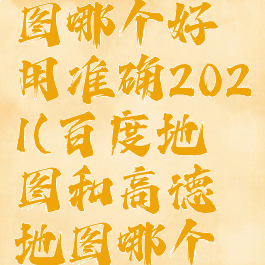 图哪个好
用准确202
1(百度地
图和高德
地图哪个